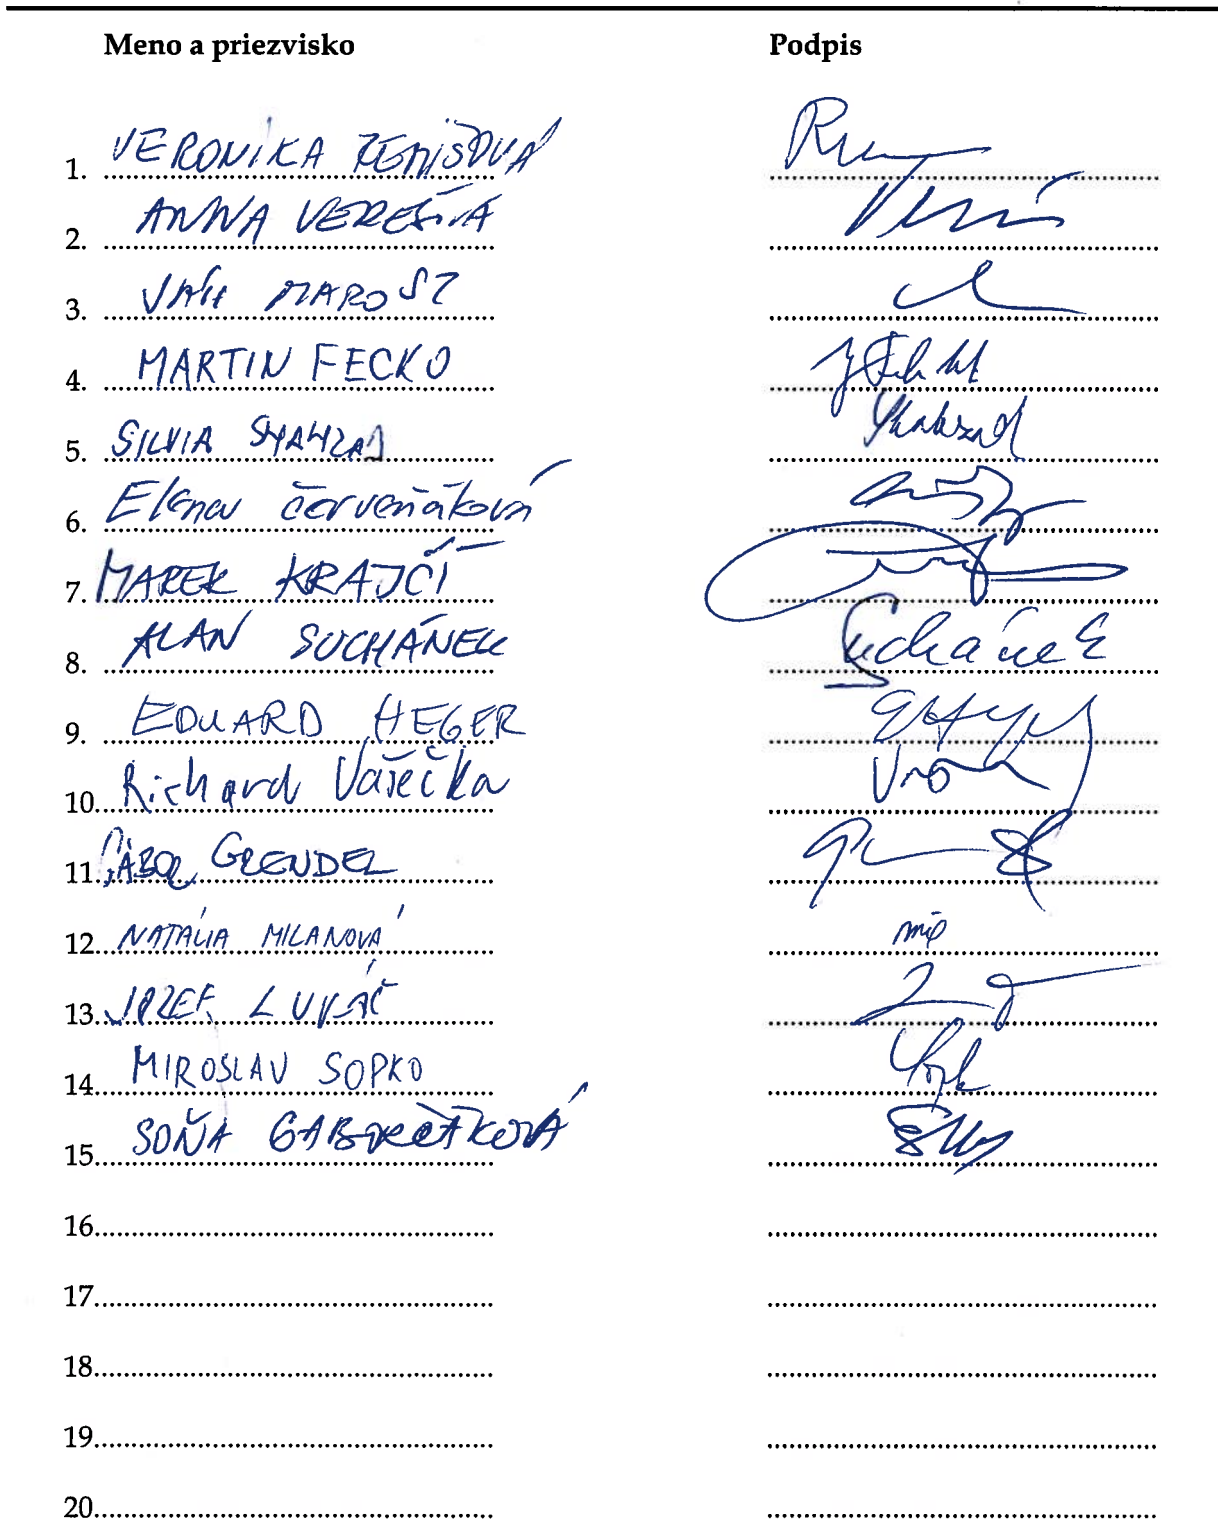 Meno a priezvisko Podpis
1. VERONIKA REMIŠOVÁ
2. ANNA VEREŠOVÁ
3. JÁN MAROSZ
4. MARTIN FECKO
5. SILVIA SHAHZAD
6. Elena Červeňáková
7. MAREK KRAJČÍ
8. ALAN SUCHÁNEK Suchánek
9. EDUARD HEGER
10. Richard Vašečka
11. GÁBOR GRENDEL
12. NATÁLIA MILANOVÁ
13. JOZEF LUKÁČ
14. MIROSLAV SOPKO
15. SOŇA GABORČÁKOVÁ
16.
17.
18.
19.
20.